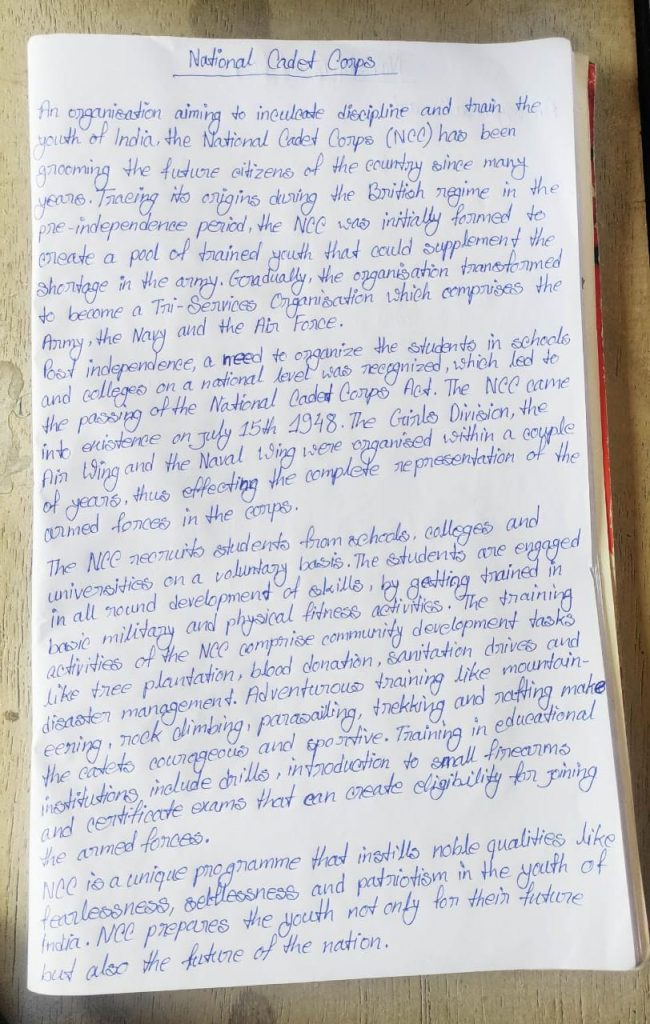 National Cadet Corps
An organisation aiming to inculcate discipline and train the
youth of India, the National Cadet Corps (NCC) has been
grooming the future citizens of the country since many
years. Tracing its origins during the British regime in the
pre-independence period, the NCC was initially formed to
create a pool of trained youth that could supplement the
shortage in the army. Gradually, the organisation transformed
to become a Tri-Services Organisation which comprises the
Army, the Navy and the Air Force.
Post independence, a need to organize the students in schools
and colleges on a national level was recognized, which led to
the passing of the National Cadet Corps Act. The NCC came
into existence on July 15th 1948. The Girls Division, the
Air Wing and the Naval Wing were organised within a couple
of years, thus effecting the complete representation of the
armed forces in the corps.
The NCC recruits students from schools, colleges and
universities on a voluntary basis. The students are engaged
in all round development of skills, by getting trained in
basic military and physical fitness activities. The training
activities of the NCC comprise community development tasks
like tree plantation, blood donation, sanitation drives and
disaster management. Adventurous training like mountain-
eering, rock climbing, parasailing, trekking and rafting make
the cadets courageous and sportive. Training in educational
institutions include drills, introduction to small firearms
and certificate exams that can create eligibility for joining
the armed forces.
NCC is a unique programme that instills noble qualities like
fearlessness, selflessness and patriotism in the youth of
India. NCC prepares the youth not only for their future
but also the future of the nation.